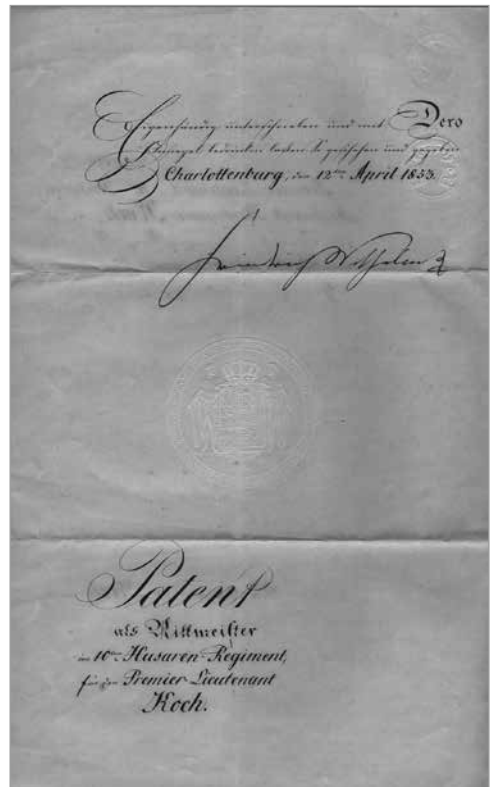 Eigenhändig unterschrieben und mit Dero
Insiegel bedrucken lassen. So geschehen und gegeben
Charlottenburg, den 12ten April 1853.
Friedrich Wilhelm
Patent
als Rittmeister
im 10ten Husaren-Regiment,
für den Premier-Lieutenant
Koch.